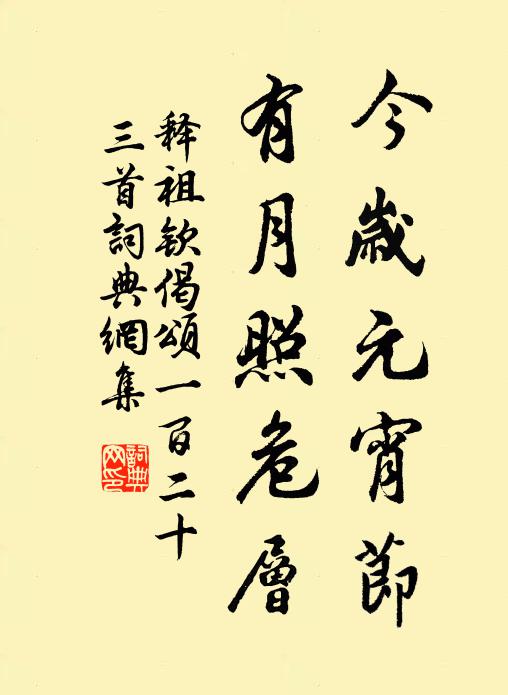 今歲元宵節
有月照危層
释祖钦偈頌一百二十
三首詞典網集
詞典
网印